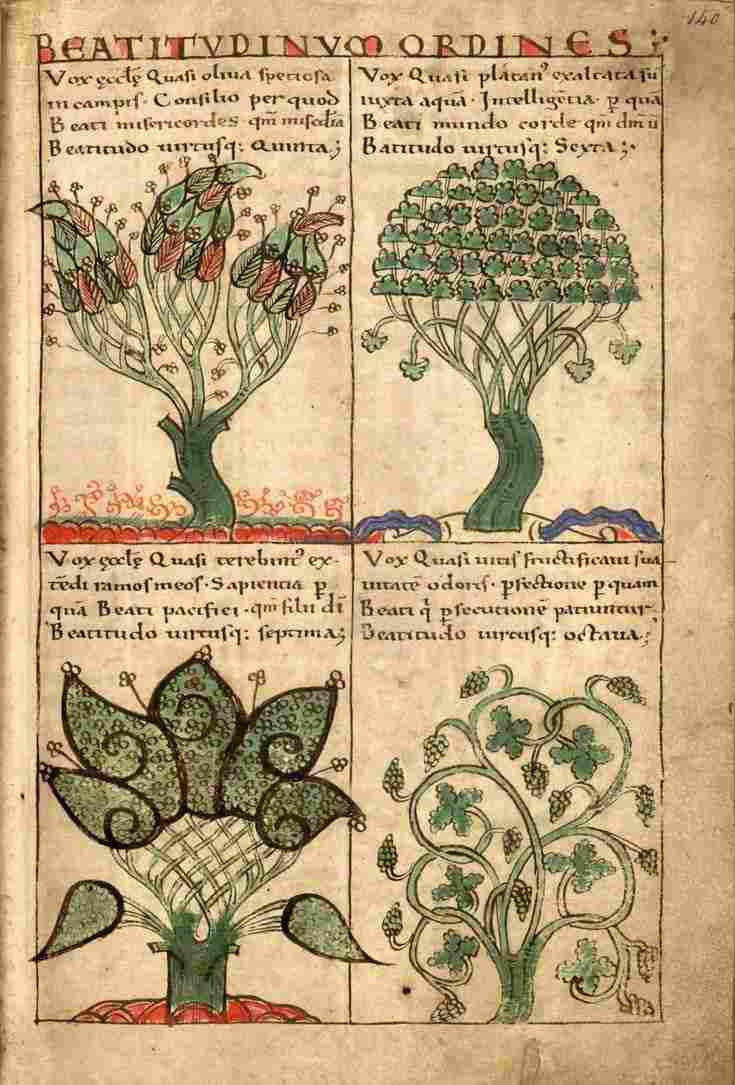 140
BEATITVDINVM ORDINES
Vox ęcclę Quasi oliua speciosa
in campis. Consilio per quod
Beati misericordes. qm̄ misc̄dia
Beatitudo uirtusq; Quinta;
Vox Quasi platan' exaltata sū
iuxta aquā. Intelligētia. p quā
Beati mundo corde qm̄ dm̄ ū
Batitudo uirtusq; Sexta;
Vox ęcclę Quasi terebint' ex-
tēdi ramos meos. Sapientia p
quā Beati pacifici. qm̄ filii dī
Beatitudo uirtusq; septima;
Vox Quasi uitis fructificaui sua
uitatē odoris. pfectione p quam
Beati q̄ psecutionē patiuntur
Beatitudo uirtusq; octaua;